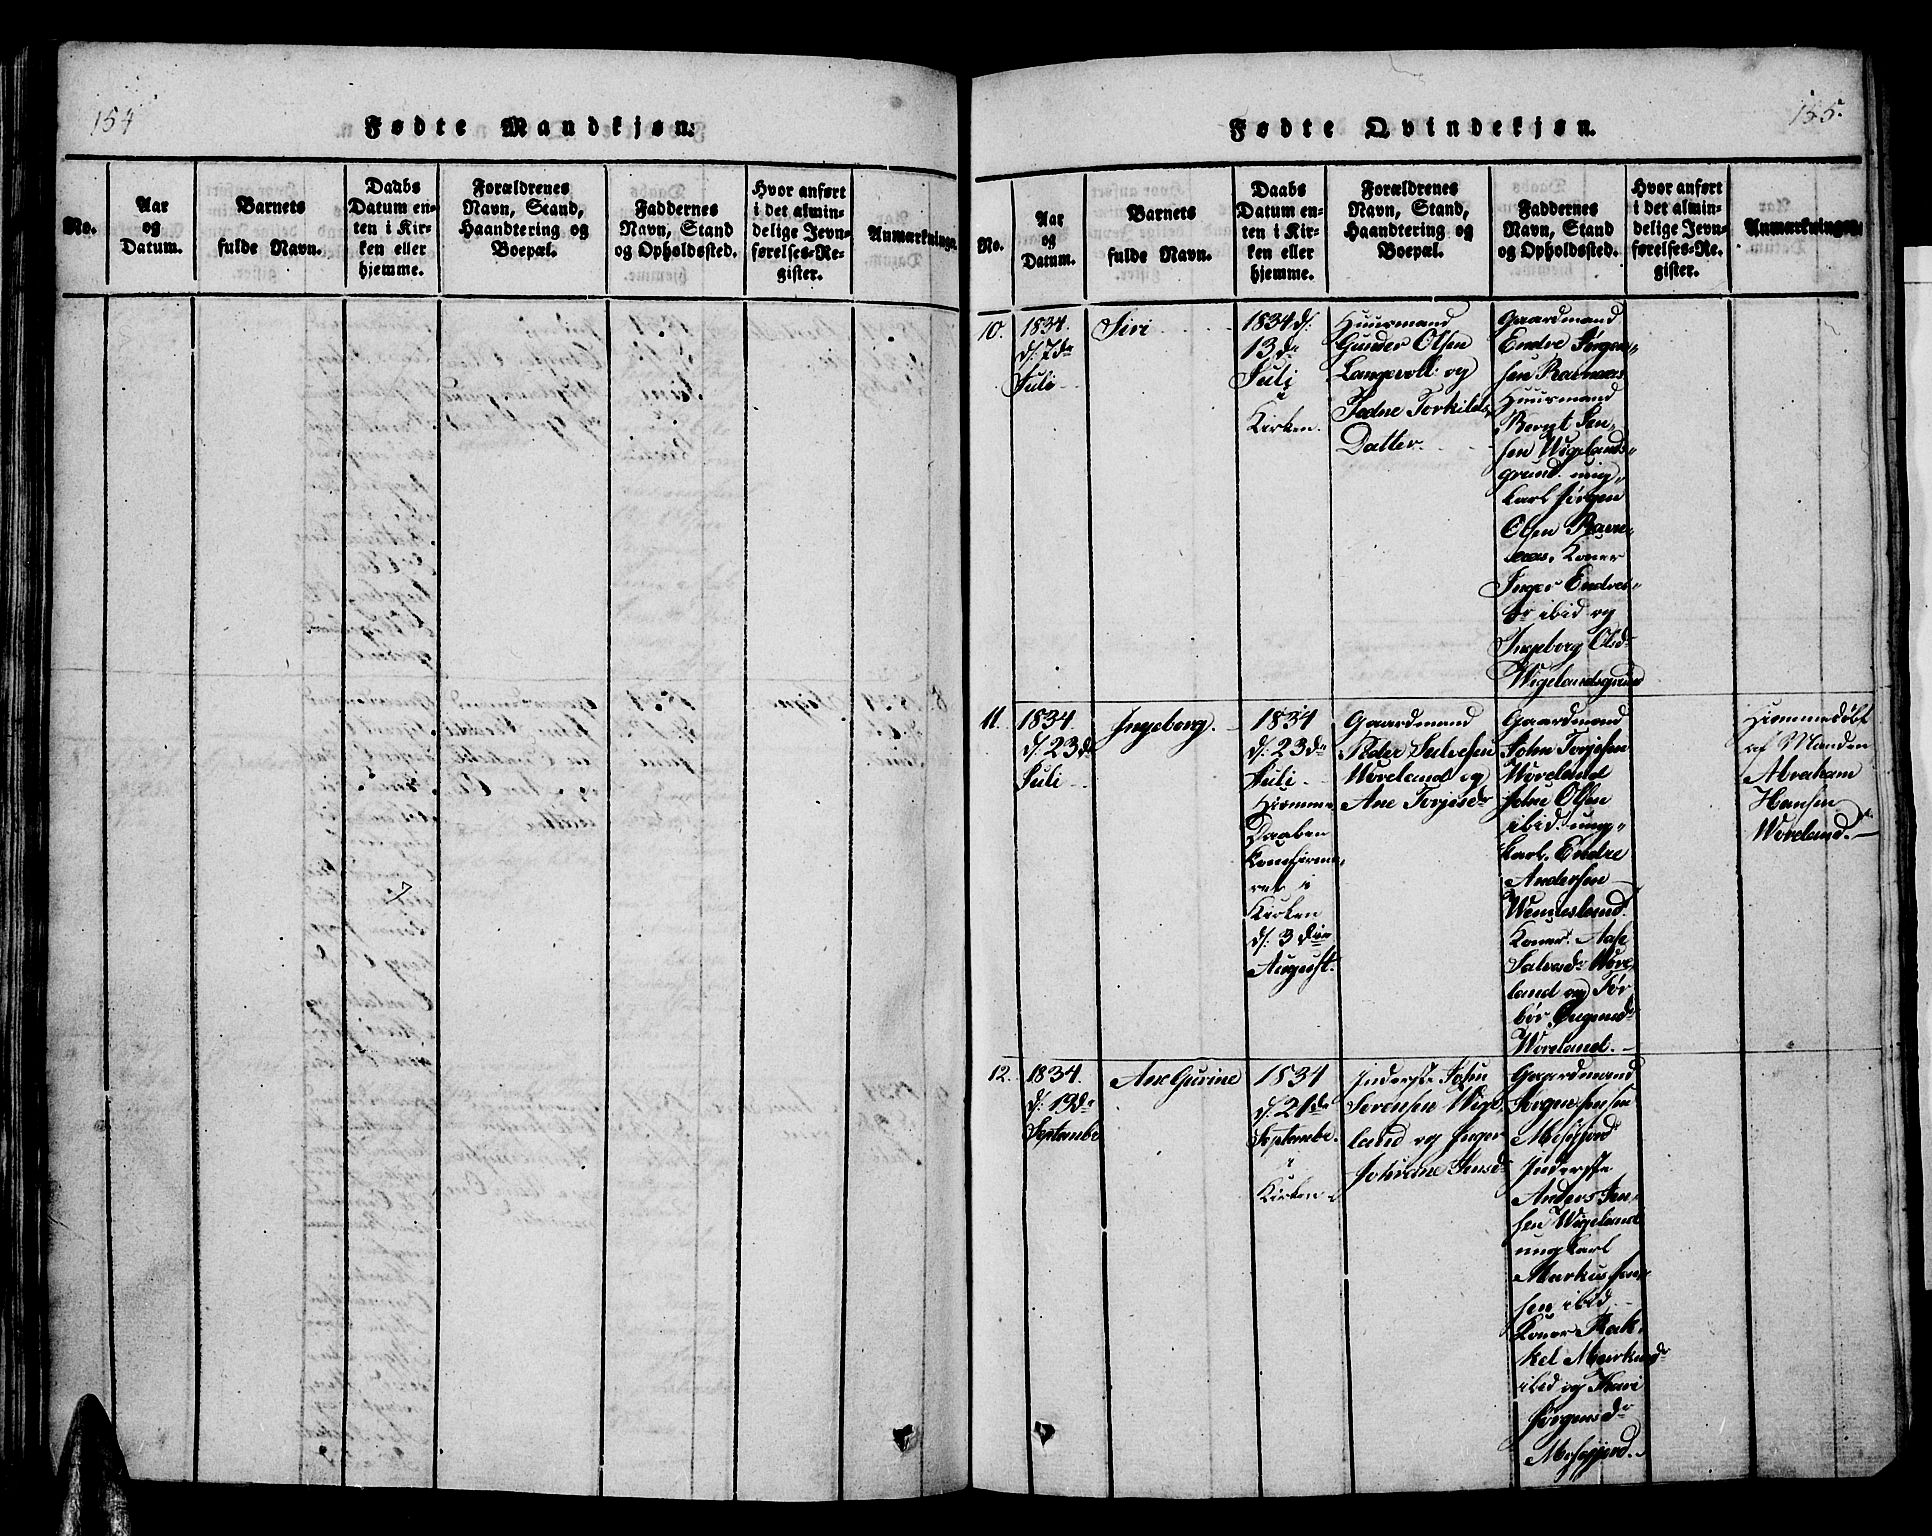 154
Fødte Mandkjøn.
No.
Aar
og
Datum.
Barnets
fulde Navn.
Daabs
Datum en-
ten i Kir-
ken eller
hjemme.
Forældrenes
Navn, Stand,
Haandtering og
Boepæl.
Faddernes
Navn, Stand
og Opholdssted.
Hvor anført
i det almin-
delige Jevn-
førelses-Re-
gister.
Anmærkninge.
155.
Fødte Qvindekjøn.
No.
Aar
og
Datum.
Barnets
fulde Navn.
Daabs
Datum en-
ten i Kir-
ken eller
hjemme.
Forældrenes
Navn, Stand,
Haandtering og
Boepæl.
Faddernes
Navn, Stand
og Opholdssted.
Hvor anført
i det almin-
delige Jevn-
førelses-Re-
gister.
Anmærkninger.
10.
1834.
d: 7de
Juli
Siri
1834 d:
13de
Juli
i
Kirken.
Huusmand
Gunder Olsen
Langevoll og
Tedne Torkilds
Datter.
Gaardmand
Endre Jørgen-
sen Ravnaas
Huusmand
Bernt Jen-
sen Wigelands-
grund ung-
karl Jørgen
Olsen Ravn-
aas, Koner
Inger Endres-
dr ibid og
Ingeborg Olsd.
Wigelandsgrund
11.
1834.
d: 23de
Juli
Ingeborg.
1834
d: 23de
Juli
Hiemme
Daaben
Konfirme-
ret i
Kirken
d: 3die
August.
Gaardmand
Peder Salvesen
Woreland og
Ane Torjesdr
Gaardmand
John Torjesen
Woreland
Jidne Olsen
ibid. ung-
karl. Endre
Andersen
Wennesland.
Koner. Aase
Salvesdr Wore-
land og Tor
bor
Woreland.
Hiemmedøbt
af Manden
Abraham
Hansen
Woreland.
12.
1834.
d: 19de
Septembe
Ane Gurine
1834
d: 21de
Septembe.
i
Kirken
Inderste John
Sørensen Wige
land og Inger
Johanne Jensdr
Gaardmand
Jørgen Jensen
Mosfjord
Inderste
Anders Jen-
sen Wigeland
ungkarl
Markus Jen-
sen ibid
Koner Rak-
kel Markusdr
ibid og Thari
Jørgensdr
Mosfjord.